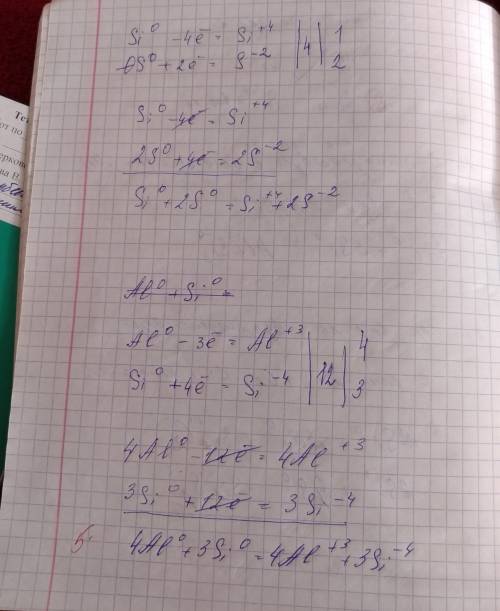 Si⁰ -4ē = Si⁺⁴ | 4 | 1
S⁰ + 2ē = S⁻² 2
Si⁰ -4ē = Si⁺⁴
2S⁰ +4ē = 2S⁻²
Si⁰ + 2S⁰ = Si⁺⁴ + 2S⁻²
Al⁰ + Si⁰ =
Al⁰ - 3ē = Al⁺³ | 12 | 4
Si⁰ + 4ē = Si⁻⁴ 3
4Al⁰ - 12ē = 4Al⁺³
3Si⁰ + 12ē = 3Si⁻⁴
5. 4Al⁰ + 3Si⁰ = 4Al⁺³ + 3Si⁻⁴